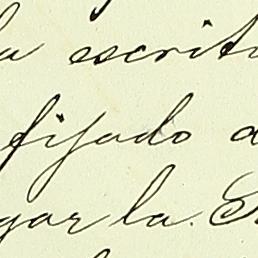 la escrit
fijado a
gar la S